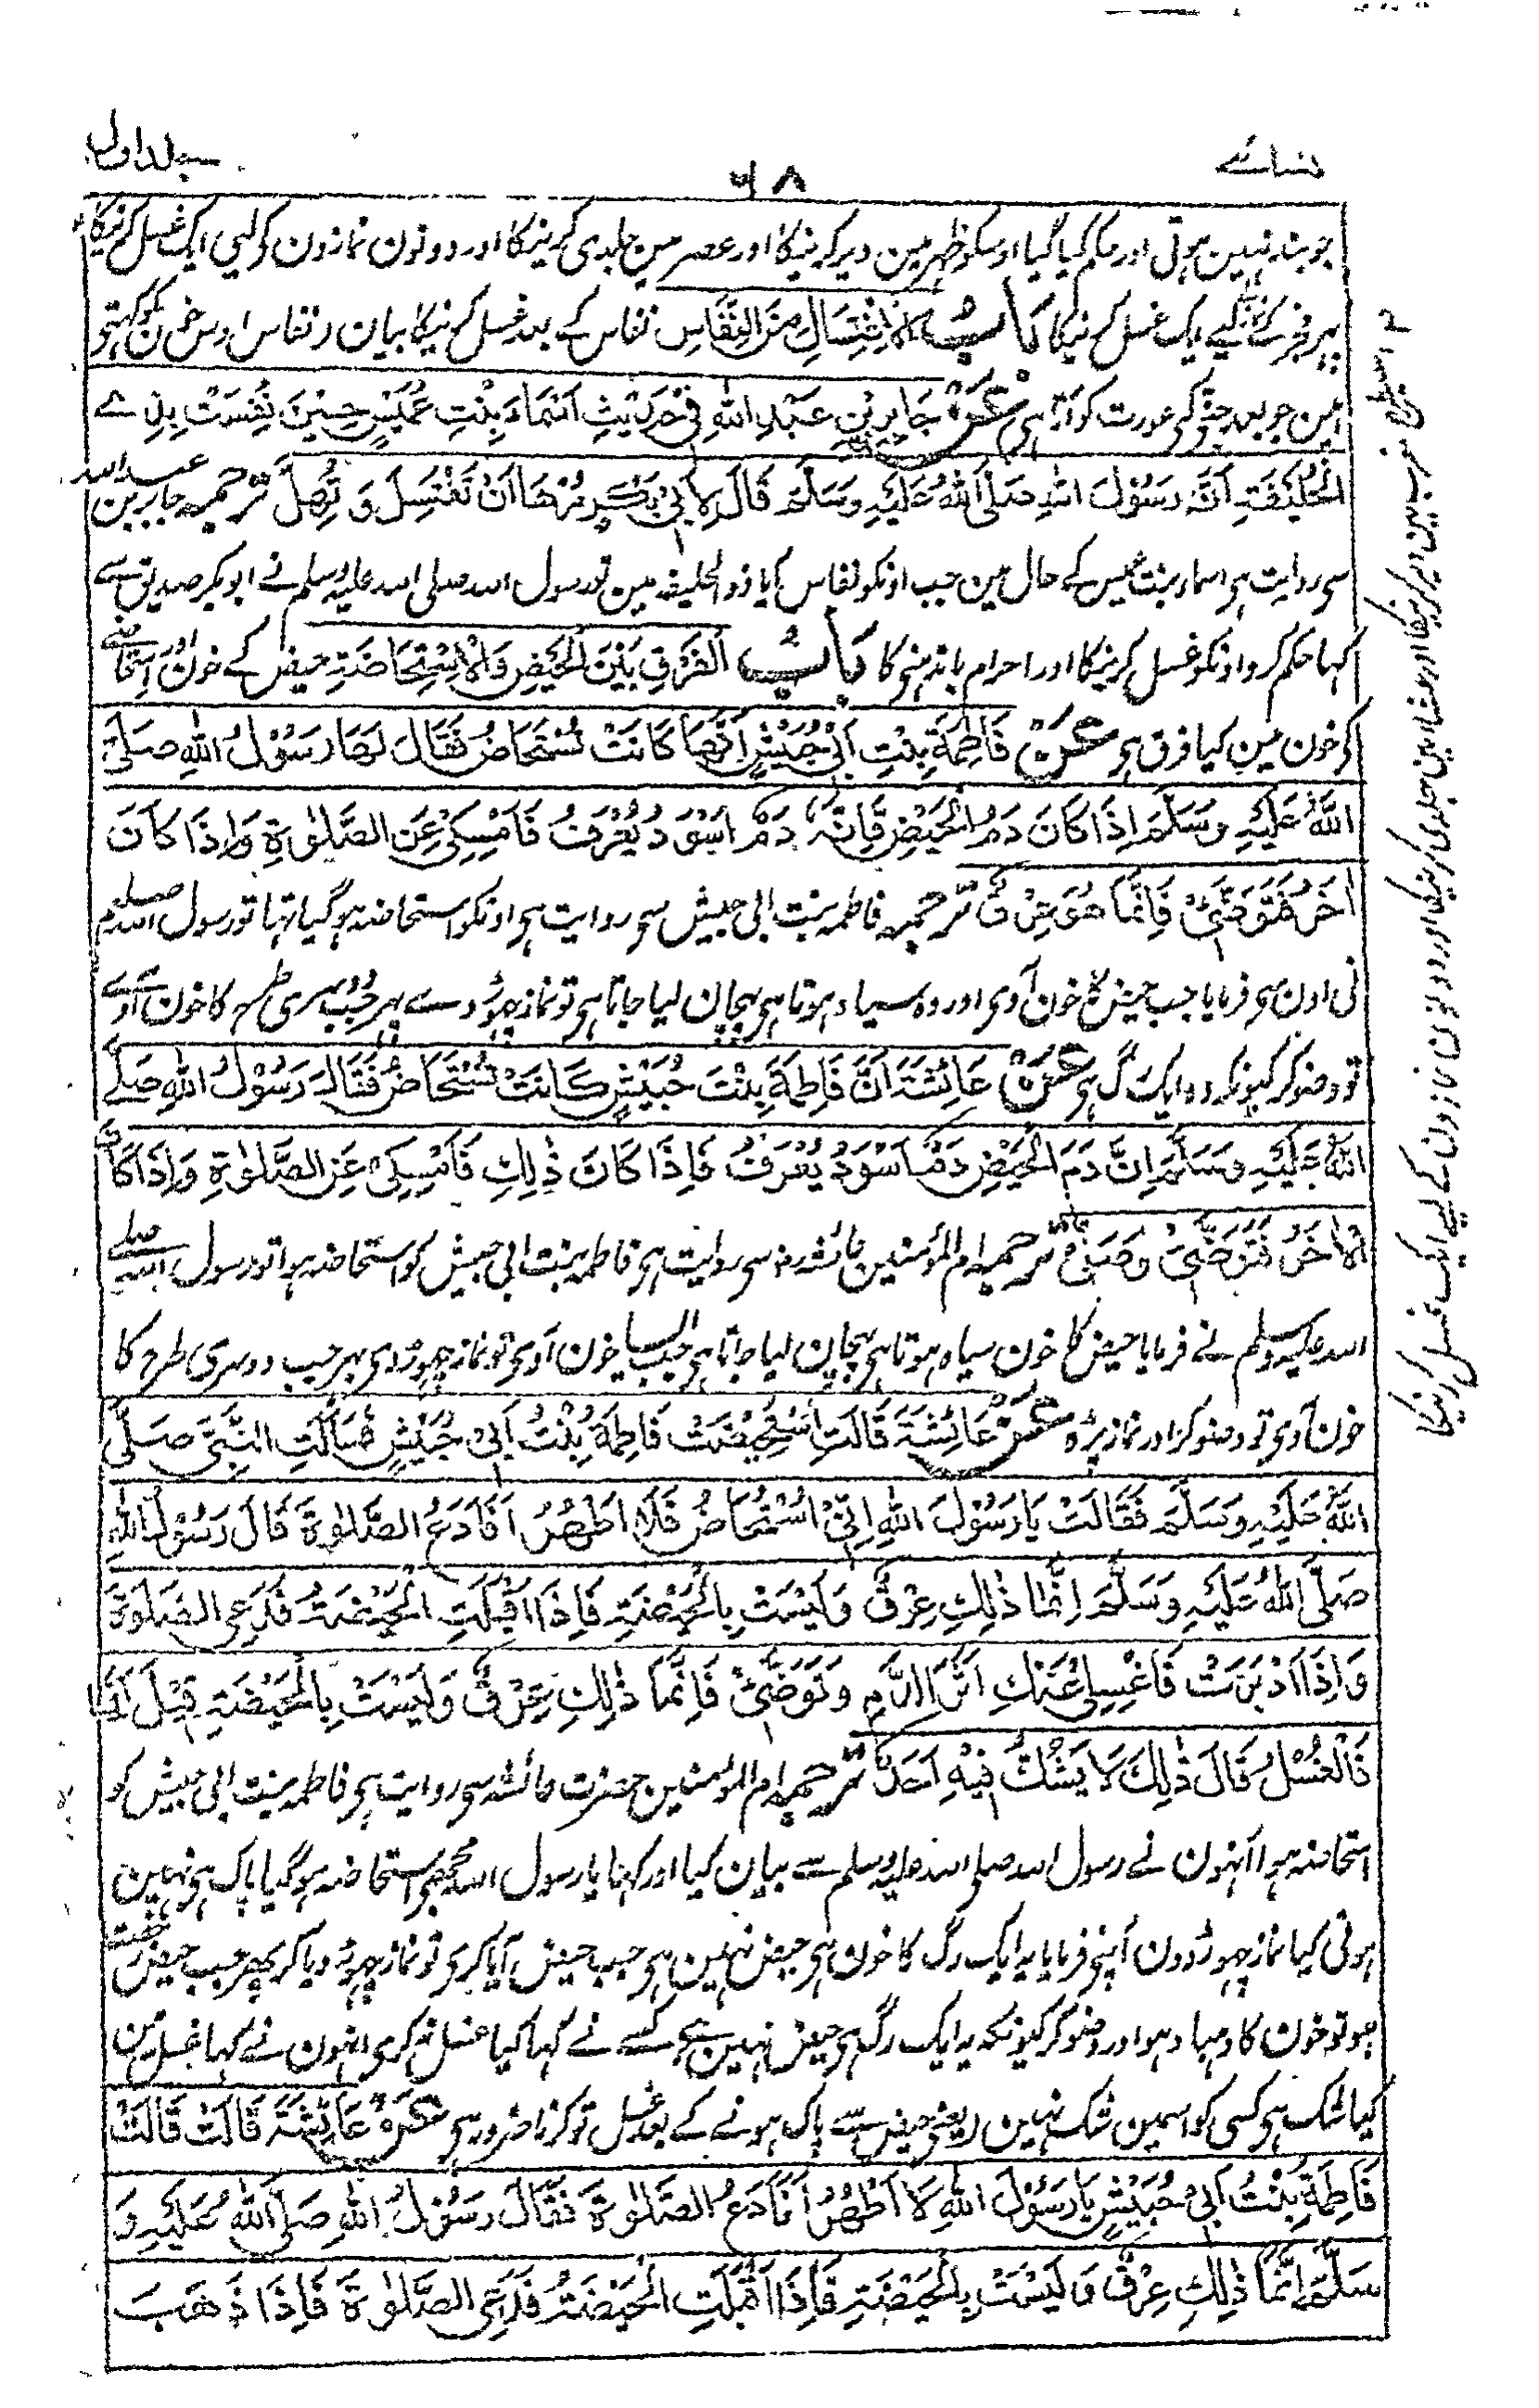 نسائے
۶۸
جلد اول
جو بند نہین ہوتی اور حکم کیا گیا اوسکو ظہر مین دیر کرنیکا اور عصر مین جلدی کرنیکا اور دونون نمازون کو لیی ایک غسل کرنیکا
پہر فجر کے لیے ایک غسل کرنیکا بَابُ الْاِغْتِسَالِ مِنَ النِّفَاسِ نفاس کے بعد غسل کرنیکا بیان (نفاس اوس خون کو کہتے
ہین جو بعد جننے کے عورت کو آتا ہی عَنْ جَابِرِ بْنِ عَبْدِ اللهِ فِیْ حَدِیْثِ اَسْمَاءَ بِنْتِ عُمَیْسٍ حِیْنَ نُفِسَتْ بِذِی
الْحُلَیْفَةِ اَنَّ رَسُوْلَ اللهِ صَلَّی اللهُ عَلَیْهِ وَسَلَّمَ قَالَ لِاَبِیْ بَکْرٍ مُرْهَا اَنْ تَغْتَسِلَ وَ تُهِلَّ ترجمہ جابر بن عبد اللہ
سی روایت ہی اسماء بنت عمیس کے حال مین جب اونکو نفاس آیا ذو الحلیفہ مین تو رسول اللہ صلی اللہ علیہ وسلم نے ابو بکر صدیق سے
کہا حکم کرو اونکو غسل کرنیکا اور احرام باندہنی کا بَابُ الْفَرْقِ بَیْنَ الْحَیْضِ وَالْاِسْتِحَاضَةِ حیض کے خون اور استحاضے
کو خون مین کیا فرق ہی عَنْ فَاطِمَةَ بِنْتِ اَبِیْ حُبَیْشٍ اَنَّهَا کَانَتْ تُسْتَحَاضُ فَقَالَ لَهَا رَسُوْلُ اللهِ صَلَّی
اللهُ عَلَیْهِ وَسَلَّمَ اِذَا کَانَ دَمُ الْحَیْضِ فَاِنَّهٗ دَمٌ اَسْوَدُ یُعْرَفُ فَاَمْسِکِیْ عَنِ الصَّلٰوةِ وَاِذَا کَانَ
اٰخَرُ فَتَوَضَّئِیْ فَاِنَّمَا هُوَ عِرْقٌ ترجمہ فاطمہ بنت ابی حبیش سی روایت ہی اونکو استحاضہ ہو گیا تہا تو رسول اللہ صلعم
نی اون سی فرمایا جب حیض کا خون آوی اور وہ سیاہ ہوتا ہی پہچان لیا جاتا ہی تو نماز چہوڑ دے پہر جب دوسری طرح کا خون آوے
تو وضو کر کیونکہ وہ ایک رگ ہی عَنْ عَائِشَةَ اَنَّ فَاطِمَةَ بِنْتَ حُبَیْشٍ کَانَتْ تُسْتَحَاضُ فَقَالَ رَسُوْلُ اللهِ صَلَّی
اللهُ عَلَیْهِ وَسَلَّمَ اِنَّ دَمَ الْحَیْضِ دَمٌ اَسْوَدُ یُعْرَفُ فَاِذَا کَانَ ذٰلِکِ فَاَمْسِکِیْ عَنِ الصَّلٰوةِ وَاِذَا کَانَ
الْاٰخَرُ فَتَوَضَّئِیْ وَصَلِّیْ ترجمہ ام المؤمنین عائشہ رضہ سی روایت ہی فاطمہ بنت ابی حبیش کو استحاضہ ہوا تو رسول اللہ صلے
اللہ علیہ وسلم نے فرمایا حیض کا خون سیاہ ہوتا ہی پہچان لیا جاتا ہی جب ایسا خون آوی تو نماز چہوڑ دی پہر جب دوسری طرح کا
خون آوی تو وضو کر اور نماز پڑہ عَنْ عَائِشَةَ قَالَتِ اسْتُحِیْضَتْ فَاطِمَةُ بِنْتُ اَبِیْ حُبَیْشٍ فَسَاَلَتِ النَّبِیَّ صَلَّی
اللهُ عَلَیْهِ وَسَلَّمَ فَقَالَتْ یَا رَسُوْلَ اللهِ اِنِّیْ اُسْتَحَاضُ فَلَا اَطْهُرُ اَفَاَدَعُ الصَّلٰوةَ قَالَ رَسُوْلُ اللهِ
صَلَّی اللهُ عَلَیْهِ وَسَلَّمَ اِنَّمَا ذٰلِکِ عِرْقٌ وَلَیْسَتْ بِالْحَیْضَةِ فَاِذَا اَقْبَلَتِ الْحَیْضَةُ فَدَعِی الصَّلٰوةَ
وَاِذَا اَدْبَرَتْ فَاغْسِلِیْ عَنْكِ اَثَرَ الدَّمِ وَتَوَضَّئِیْ فَاِنَّمَا ذٰلِكِ عِرْقٌ وَلَیْسَتْ بِالْحَیْضَةِ قِیْلَ لَهٗ
فَالْغُسْلُ قَالَ ذٰلِكَ لَا یَشُكُّ فِیْهِ اَحَدٌ ترجمہ ام المؤمنین حضرت عائشہ سی روایت ہی فاطمہ بنت ابی حبیش کو
استحاضہ ہوا اونہون نے رسول اللہ صلی اللہ علیہ وسلم سے بیان کیا اور کہا یا رسول اللہ مجہی استحاضہ ہو گیا پاک ہی نہین
ہوتی کیا نماز چہوڑ دون آپنی فرمایا یہ ایک رگ کا خون ہی حیض نہین ہی جب حیض آیا کری تو نماز چہوڑ دیا کر پھر جب حیض رخصت
ہو تو خون کا دہبا دہو اور وضو کر کیونکہ یہ ایک رگ ہی حیض نہین ہے کسے نے کہا کیا غسل نکری انہون نے کہا غسل مین
کیا شک ہی کسی کو اسمین شک نہین (یعنی حیض سے پاک ہونے کے بعد غسل تو کرنا ضرور ہی عَنْ عَائِشَةَ قَالَتْ قَالَتْ
فَاطِمَةُ بِنْتُ اَبِیْ حُبَیْشٍ یَا رَسُوْلَ اللهِ لَا اَطْهُرُ اَفَاَدَعُ الصَّلٰوةَ فَقَالَ رَسُوْلُ اللهِ صَلَّی اللهُ عَلَیْهِ وَ
سَلَّمَ اِنَّمَا ذٰلِكِ عِرْقٌ وَلَیْسَتْ بِالْحَیْضَةِ فَاِذَا اَقْبَلَتِ الْحَیْضَةُ فَدَعِی الصَّلٰوةَ فَاِذَا ذَهَبَ
مغرب مین دیر کرنیکا اور عشاء مین جلدی کرنیکا اور دونون نمازون کے لیے ایک غسل کرنیکا